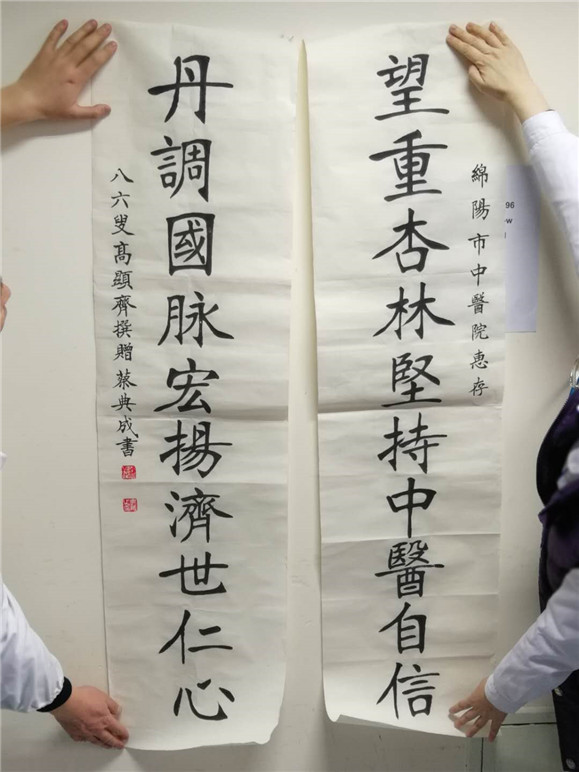 綿陽市中醫院惠存
望重杏林堅持中醫自信
丹調國脉宏揚濟世仁心
八六叟高顕齊撰贈蔡典成書
96